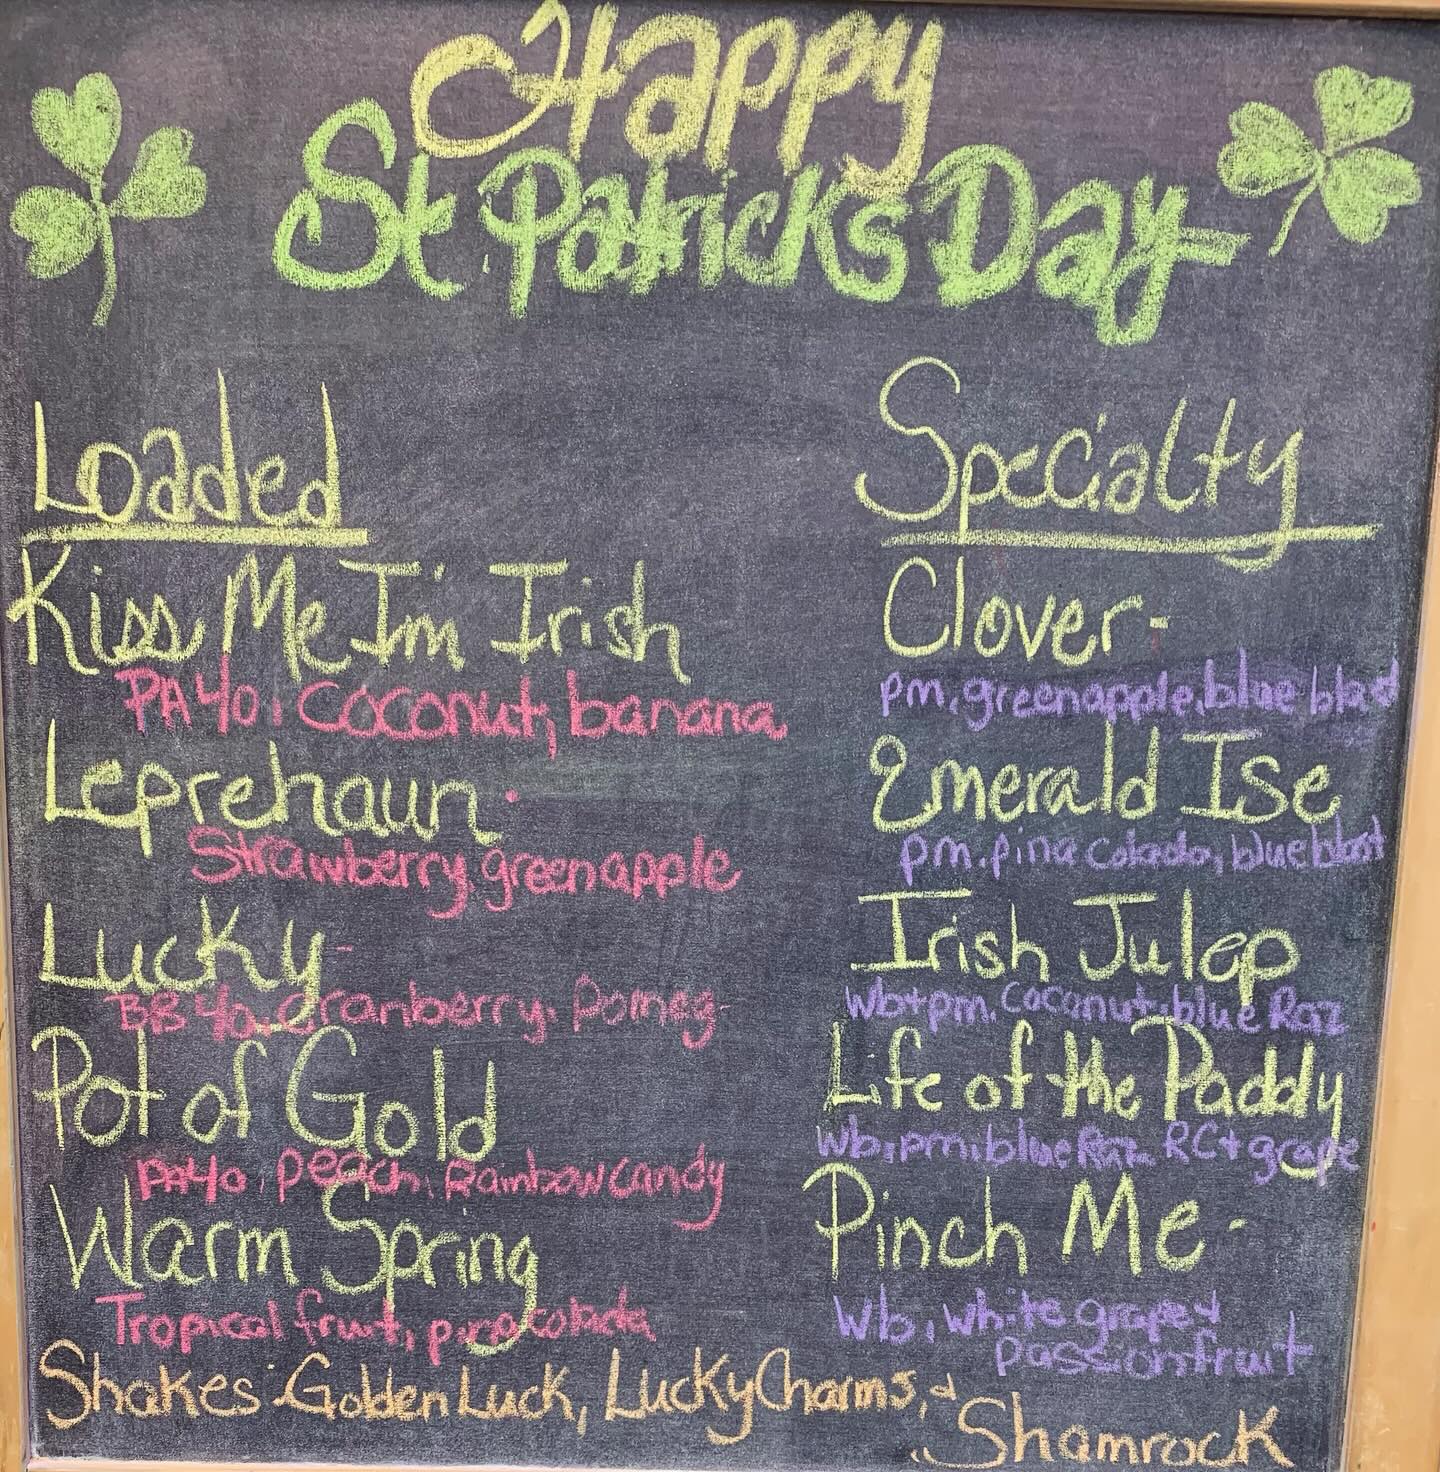 Happy
St Patricks Day
Loaded
Kiss Me I'm Irish
PA40, coconut, banana
Leprehaun.
Strawberry, green apple
Lucky-
BB40, cranberry, Pomeg-
Pot of Gold
PA40, peach, Rainbow candy
Warm Spring
Tropical fruit, pina colada
Specialty
Clover-
pm, green apple, blue
Emerald Ise
pm, pina colada, blue
Irish Julep
Wb+pm, Coconut, blue Raz
Life of the Paddy
Wb, pm, blue Raz RC+ grape
Pinch Me-
Wb, white grape +
passionfruit
Shakes: Golden Luck, Lucky Charms, +
Shamrock